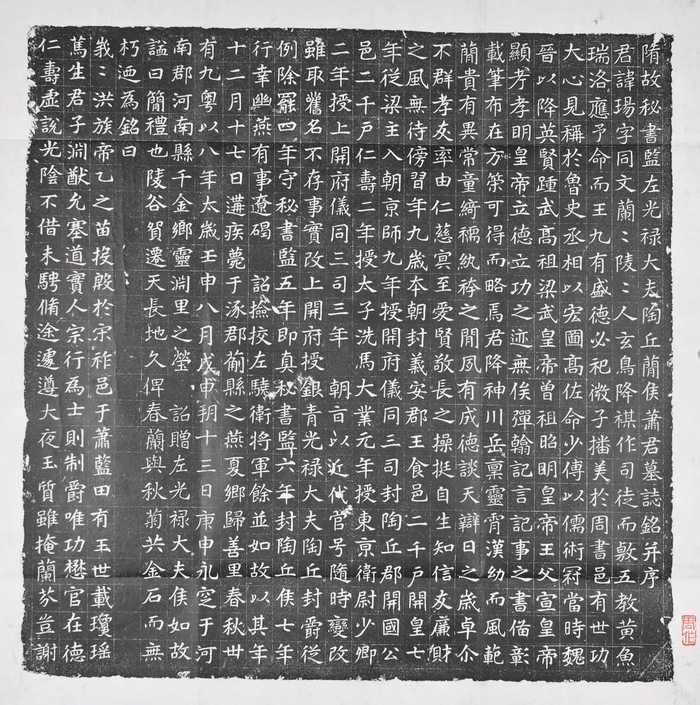 隋故秘書監左光禄大夫陶丘蕳侯蕭君墓誌銘并序
君諱瑒字同文蘭〻陵〻人玄鳥降祺作司徒而敷五教黃魚
瑞洛應予命而王九有盛德必祀微子播美於周書邑有世功
大心見稱於魯史丞相以宏圖髙佐命少傅以儒術冠當時魏
晉以降英賢踵武髙祖梁武皇帝曽祖昭明皇帝王父宣皇帝
顯考孝明皇帝立德立功之迹無俟彈翰記言記事之書俻彰
載筆布在方筞可得而略焉君降神川岳禀靈霄漢幼而風範
蕳貴有異常童綺襦紈袴之間夙有成德談天辯日之歳卓尒
不群孝友率由仁慈㝠至愛賢敬長之操挺自生知信友廉財
之風無待傍習年九歳夲朝封義安郡王食邑二千戸開皇七
年從梁主入朝京師九年授開府儀同三司封陶丘郡開國公
邑二千戸仁壽二年授太子洗馬大業元年授東京衛尉少卿
二年授上開府儀同三司三年 朝㫖以近代官号隨時變改
雖取舊名不存事實改上開府授銀青光禄大夫陶丘封爵從
例除罷四年守秘書監五年即真秘書監六年封陶丘侯七年
行幸幽燕有事遼碣 詔撿挍左驍衛將軍餘並如故以其年
十二月十七日遘疾薨于涿郡薊縣之燕夏鄉歸善里春秋卅
有九粤以八年太歳壬申八月戊申朔十三日庚申永窆于河
南郡河南縣千金鄉靈淵里之塋 詔贈左光禄大夫侯如故
諡曰簡禮也陵谷貿遷天長地久俾春蘭與秋菊共金石而無
朽迺為銘曰
峩〻洪族帝乙之苗投殷於宋祚邑于蕭藍田有玉世載瓊瑤
篤生君子淵猷允塞道實人宗行為士則制爵唯功懋官在德
仁壽虚說光陰不借未騁脩途遽遵大夜玉質雖掩蘭芬豈謝